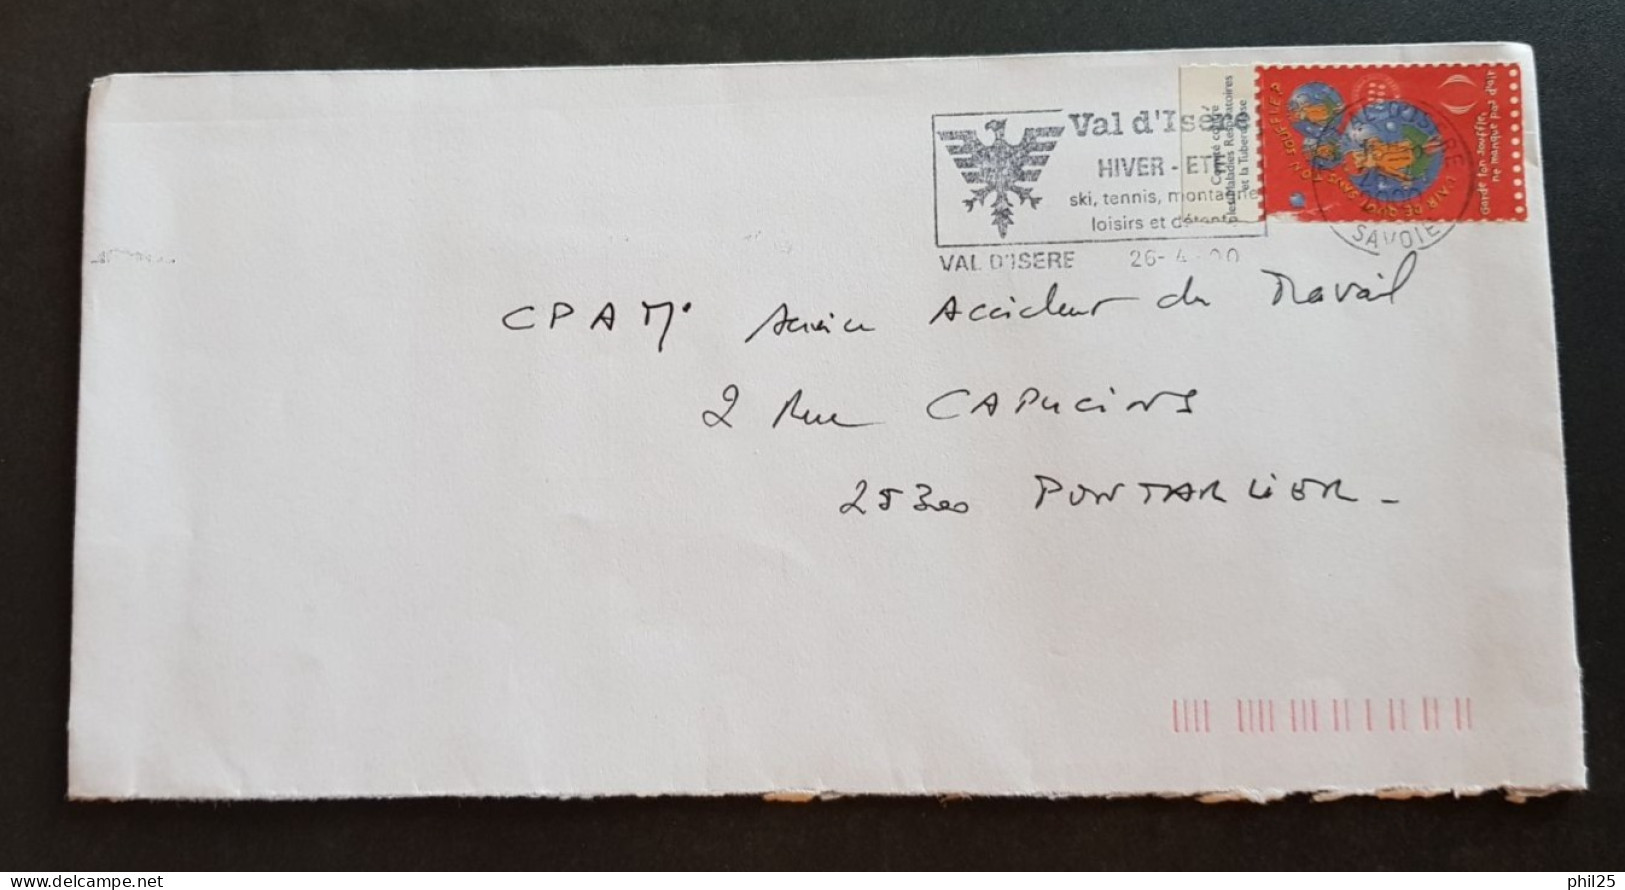 Val d'Isère
HIVER - ETE
ski, tennis, montagne
loisirs et détente
VAL D'ISERE 26-4-00
Comité contre
les Maladies Respiratoires
et la Tuberculose
L'AIR DE QUOI SANS TON SOUFFLE?
Garde ton souffle,
ne manque pas d'air
VAL-D'ISERE
SAVOIE
CPAM. Service Accident du Travail
2 Rue CAPUCINS
25300 PONTARLIER -
delcampe.net
phil25